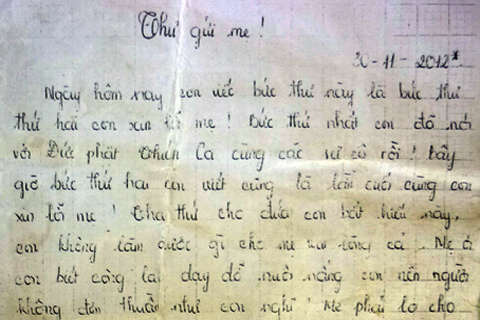 Thư gửi mẹ!
20-11-2012*
Ngày hôm nay con viết bức thư này là bức thư
thứ hai con xin lỗi mẹ! Bức thư nhất con đã nói
với Đức phật Thích Ca cùng các sư cô rồi! Bây
giờ bức thư hai con viết cũng là lần cuối cùng con
xin lỗi mẹ! Tha thứ cho đứa con bất hiếu này,
con không làm được gì cho mẹ vui lòng cả. Mẹ à
con biết công lao dạy dỗ nuôi nấng con nên người
không đơn thuần như con nghĩ! Mẹ phải lo cho